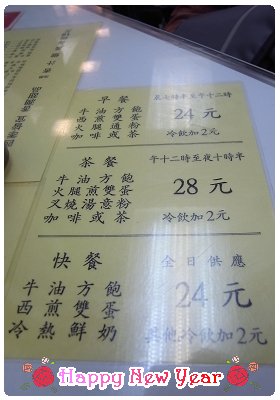 早餐
晨七時半至午十二時
牛油方飽
西煎雙蛋
火腿通粉
咖啡或茶
24元
冷飲加2元
茶餐
午十二時至夜十時半
牛油方飽
火腿煎雙蛋
叉燒湯意粉
咖啡或茶
28元
冷飲加2元
快餐
全日供應
牛油方飽
西煎雙蛋
冷熱鮮奶
24元
其他冷飲加2元
Happy New Year